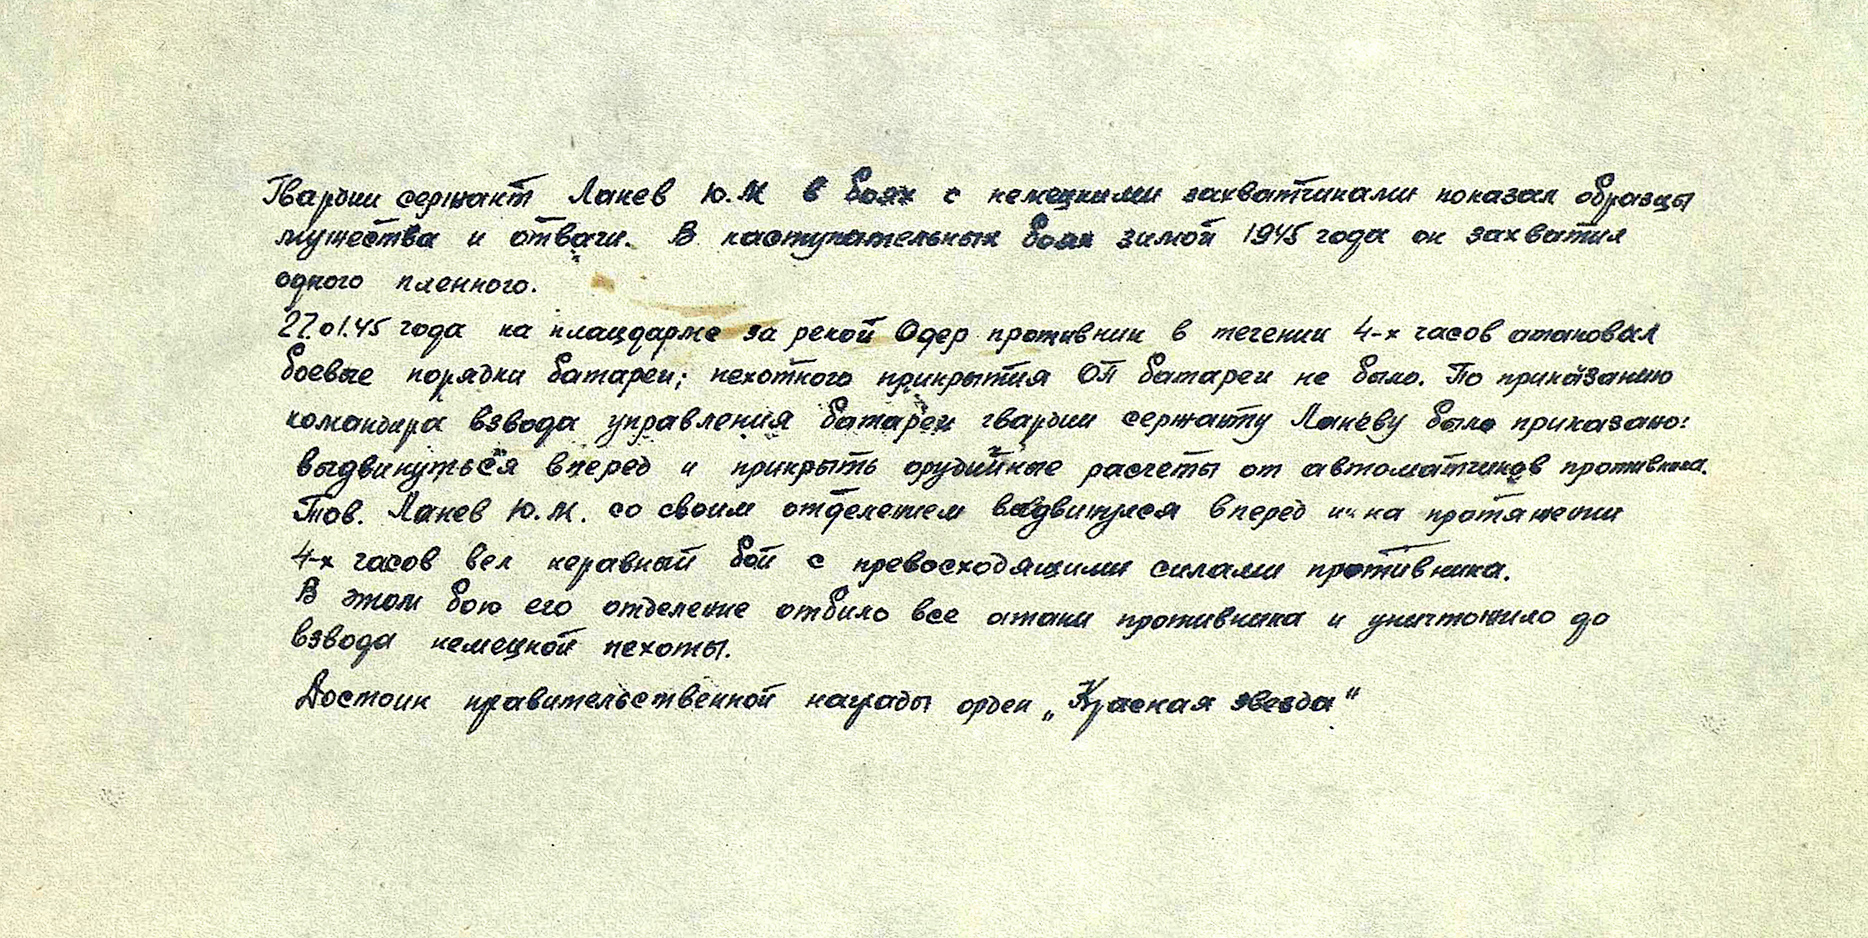 Гвардии сержант Лакев Ю.М в боях с немецкими захватчиками показал образцы
мужества и отваги. В наступательных боях зимой 1945 года он захватил
одного пленного.
27.01.45 года на плацдарме за рекой Одер противник в течении 4-х часов атаковал
боевые порядки батареи; пехотного прикрытия ОП батареи не было. По приказанию
командира взвода управления батареи гвардии сержанту Лакеву было приказано:
выдвинуться вперед и прикрыть орудийные расчеты от автоматчиков противника.
Тов. Лакев Ю.М. со своим отделением выдвинулся вперед и на протяжении
4-х часов вел неравный бой с превосходящими силами противника.
В этом бою его отделение отбило все атаки противника и уничтожило до
взвода немецкой пехоты.
Достоин правительственной награды орден „Красная звезда"